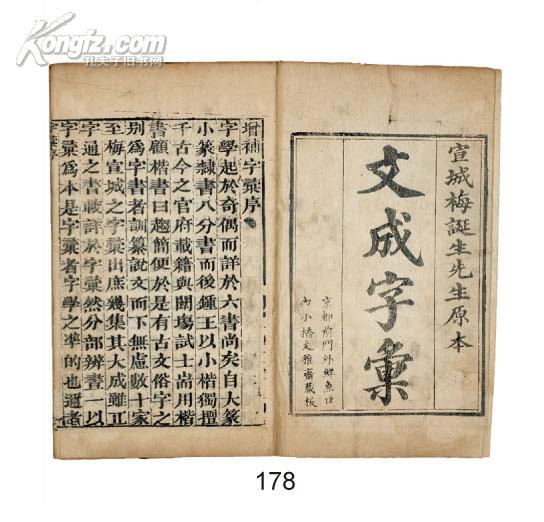 Kongfz.com
孔夫子旧书网
宣城梅誕生先生原本
文成字彙
京都前門外鮮魚口
內小橋文雅齋藏板
增補字彙序
字學起於奇偶而詳於六書尚矣自大篆
小篆隸書八分書而後鍾王以小楷獨擅
千古今之官府載籍與闗塲試士耑用楷
書顧楷書曰趨簡便於是有古文俗字之
別為字書者訓纂說文而下無慮數十家
至梅宣城之字彙出庶幾集其大成雖正
字通之書較詳於字彙然分部辨書一以
字彙為本是字彙者字學之凖的也邇者
178